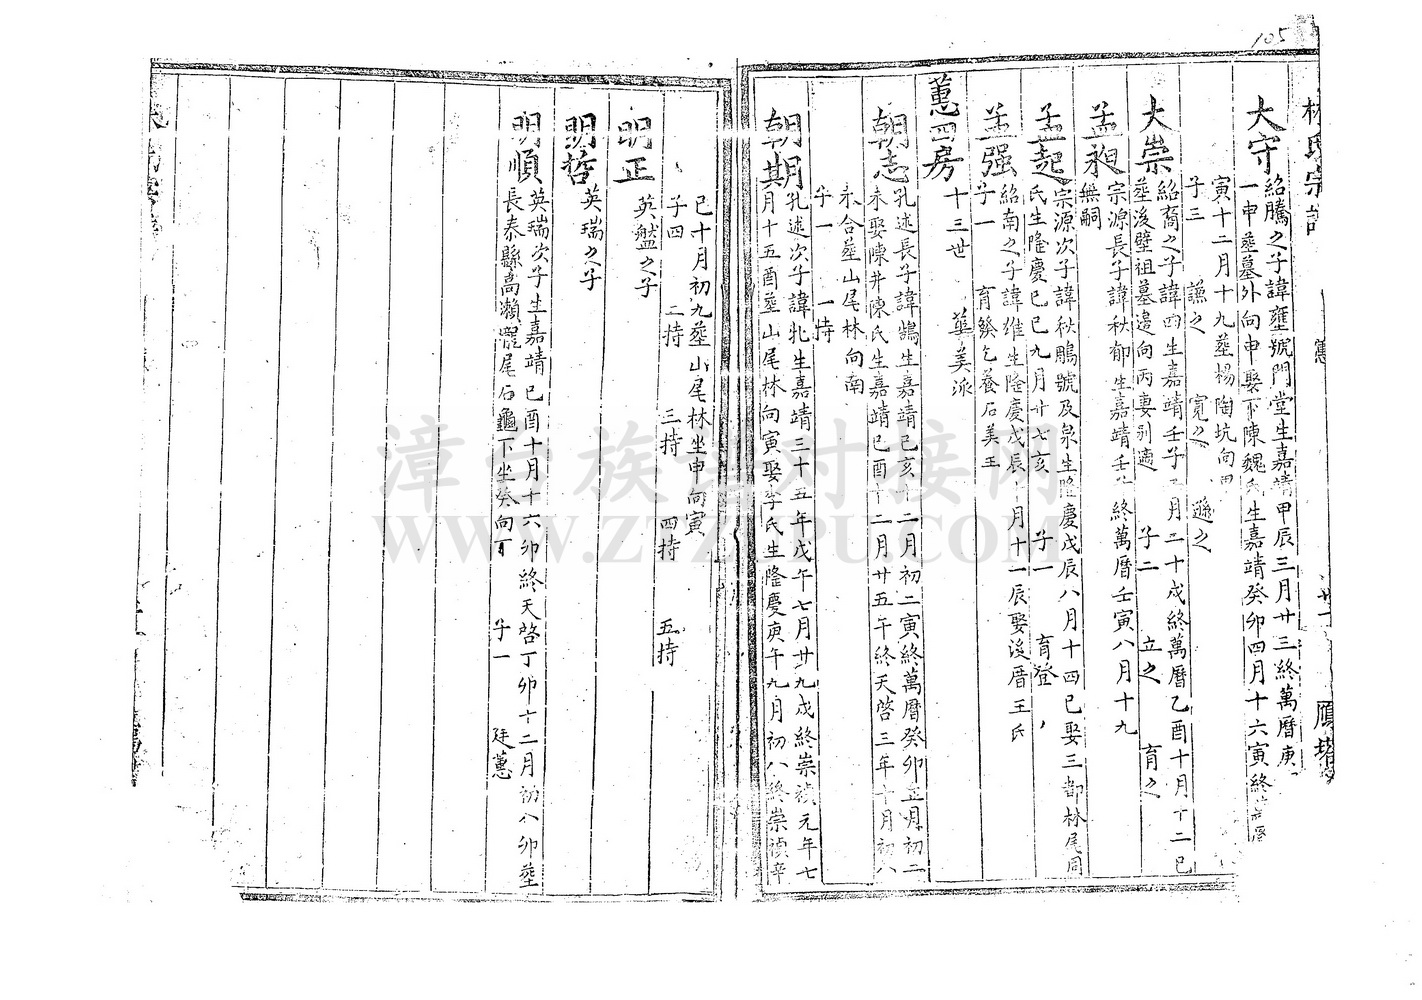 105
林氏宗譜
大守
紹騰之子諱壅號門堂生嘉靖甲辰三月廿三終萬曆庚
一申葬墓外向申娶下陳魏氏生嘉靖癸卯四月十六寅終萬曆
寅十二月十九葬楊陶坑向甲
子三 謙之 寬之 遜之
大崇
紹裔之子諱四生嘉靖壬子 月二十戌終萬曆乙酉十月十二巳
葬後壁祖墓邊向丙妻別適 子二 立之 育之
孟昶
宗源長子諱秋郁生嘉靖壬 終萬曆壬寅八月十九
無嗣
孟起
宗源次子諱秋鵰號及泉生隆慶戊辰八月十四巳娶三都林尾周
氏生隆慶己巳九月廿七亥 子一 育登
孟强
紹南之子諱維生隆慶戊辰 月十一辰娶後厝王氏
子一 育繁乞養石美王
蕙四房
十三世 華美派
朝志
孔述長子諱鵠生嘉靖己亥十二月初二寅終萬曆癸卯正月初二
未娶陳井陳氏生嘉靖己酉十二月廿五午終天啓三年十月初八
未合葬山尾林向南
子一 一持
朝期
孔述次子諱牝生嘉靖三十五年戊午七月廿九戌終崇禎元年七
月十五酉葬山尾林向寅娶李氏生隆慶庚午九月初八終崇禎辛
巳十月初九葬山尾林坐申向寅
子四 二持 三持 四持 五持
明正
英然之子
明哲
英瑞之子
明順
英瑞次子生嘉靖己酉十月十六卯終天啓丁卯十二月初八卯葬
長泰縣高瀨 尾石龜下坐癸向丁 子一 廷蕙
漳台族谱对接网
WWW.ZTZUPU.COM